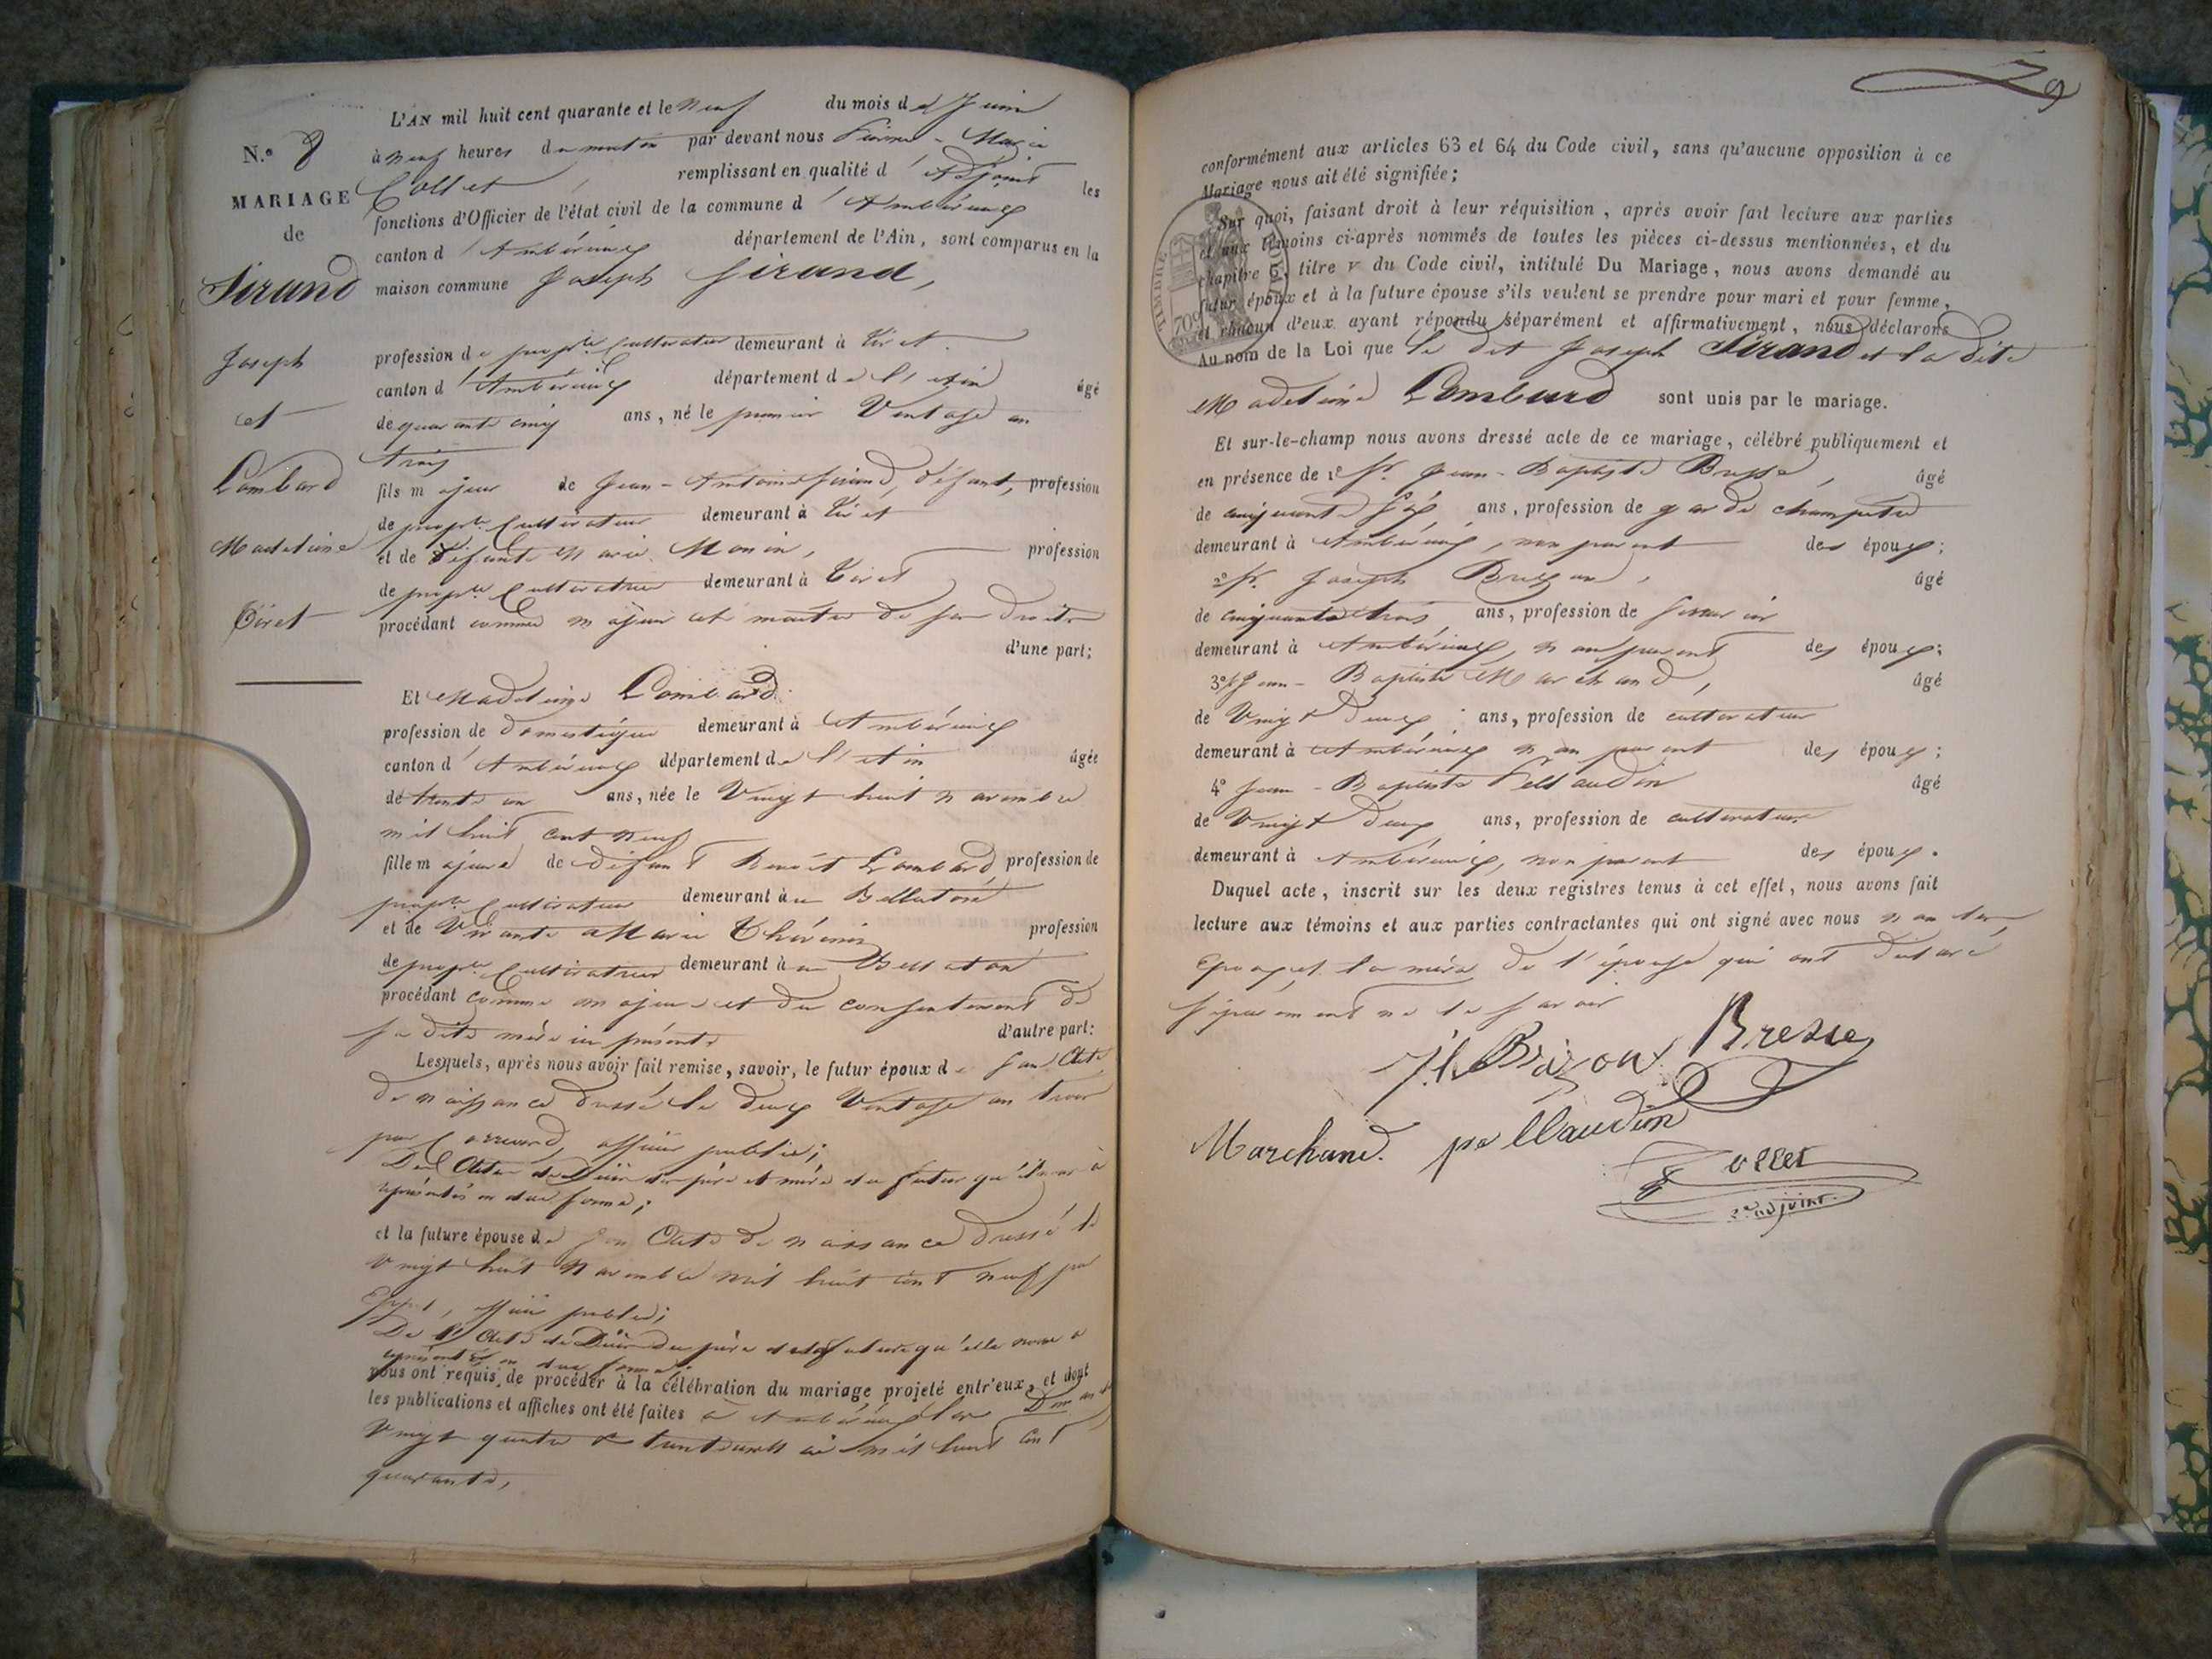 N.º 8
MARIAGE
de
Sirand
Joseph
et
Lombard
Madeleine
Tiret
L'AN mil huit cent quarante et le neuf du mois de Juin
à neuf heures du matin par devant nous Pierre-Marie
Collet, remplissant en qualité d'Adjoint les
fonctions d'Officier de l'état civil de la commune d'Ambérieux
canton d'Ambérieux département de l'Ain, sont comparus en la
maison commune Joseph Sirand,
profession de prop.re Cultivateur demeurant à Tiret
canton d'Ambérieux département de l'Ain âgé
de quarante cinq ans, né le premier Ventose an
trois
fils majeur de Jean-Antoine Sirand, défunt, profession
de prop.re Cultivateur demeurant à Tiret
et de défunte Marie Monin, profession
de prop.re Cultivatrice demeurant à Tiret
procédant comme majeur et maitre de ses droits
d'une part;
Et Madeleine Lombard
profession de domestique demeurant à Ambérieux
canton d'Ambérieux département de l'Ain âgée
de trente un ans, née le Vingt huit novembre
mil huit cent neuf
fille majeure de défunt Benoit Lombard, profession de
prop.re Cultivateur demeurant à Bellaton
et de Vivante Marie Thévenin profession
de prop.re Cultivatrice demeurant à Bellaton
procédant comme majeure et du consentement de
sa dite mère ici présente d'autre part:
Lesquels, après nous avoir fait remise, savoir, le futur époux de son Acte
de naissance dressé le deux Ventose an trois
par officier public;
Des Actes de Décès des père et mère du futur qu'il nous a
représentés en due forme;
et la future épouse de son Acte de naissance dressé le
vingt huit novembre mil huit cent neuf par
officier public;
De l'Acte de Décès du père de la future qu'elle nous a
représenté en due forme;
nous ont requis de procéder à la célébration du mariage projeté entr'eux, et dont
les publications et affiches ont été faites à Ambérieux les Dimanches
Vingt quatre et trente un mai mil huit cent
quarante,
79
conformément aux articles 63 et 64 du Code civil, sans qu'aucune opposition à ce
Mariage nous ait été signifiée;
TIMBRE ROYAL
709
Sur quoi, faisant droit à leur réquisition, après avoir fait lecture aux parties
et aux témoins ci-après nommés de toutes les pièces ci-dessus mentionnées, et du
chapitre 6, titre v du Code civil, intitulé Du Mariage, nous avons demandé au
futur époux et à la future épouse s'ils veulent se prendre pour mari et pour femme,
et chacun d'eux ayant répondu séparément et affirmativement, nous déclarons
Au nom de la Loi que le dit Joseph Sirand et la dite
Madeleine Lombard sont unis par le mariage.
Et sur-le-champ nous avons dressé acte de ce mariage, célébré publiquement et
en présence de 1º Sr. Jean-Baptiste Bresse, âgé
de cinquante six ans, profession de garde champetre
demeurant à Ambérieux, non parent des époux;
2º Sr. Joseph Brizon, âgé
de cinquante trois ans, profession de
demeurant à Ambérieux, non parent des époux;
3º Jean-Baptiste Marchand, âgé
de Vingt deux ans, profession de cultivateur
demeurant à Ambérieux non parent des époux;
4º Jean-Baptiste Pellaudin âgé
de Vingt deux ans, profession de cultivateur
demeurant à Ambérieux, non parent des époux.
Duquel acte, inscrit sur les deux registres tenus à cet effet, nous avons fait
lecture aux témoins et aux parties contractantes qui ont signé avec nous non les
Epoux et la mère de l'épouse qui ont déclaré
séparément ne le savoir
Jh Brizon Bresse
Marchand. pellaudin
Collet
adjoint